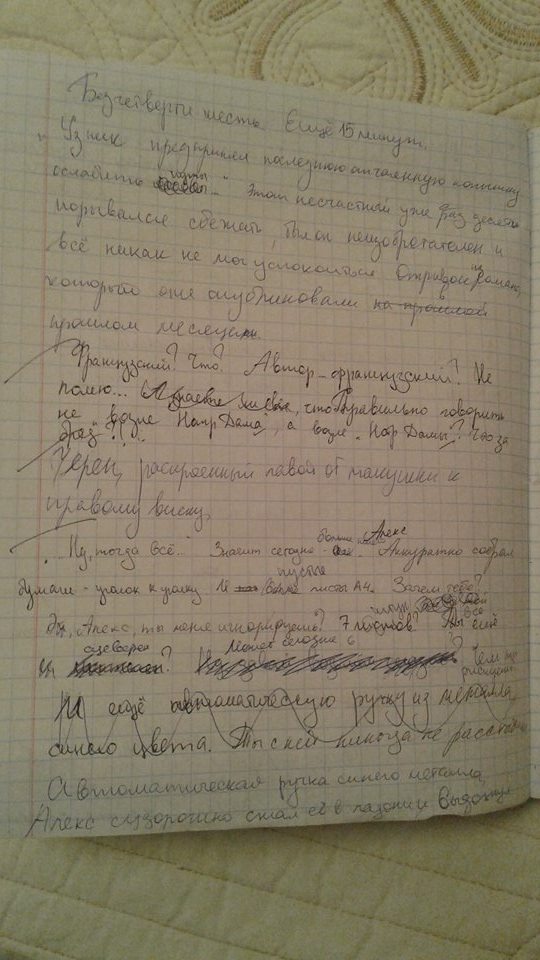 Без четверти шесть. Ещё 15 минут.
"Узник предпринял последнюю отчаянную попытку
ослабить путы..." Этот несчастный уже раз десять
порывался сбежать, был он неизобретателен и
всё никак не мог успокоиться. Отрывок из романа,
который они опубликовали на прошлой
прошлом месяце.
Французский? Что? Автор - французский? Не
помню... А знаете ли вы, что правильно говорить
не "возле Нотр Дама", а возле "Нотр Дамы"? Что за
бред?!
Череп, раскроенный лавой от макушки к
правому виску.
"Ну, тогда всё..." Значит сегодня - больше Алекс Аккуратно собрал
бумаги - уголок к уголку. И пустые листы А4. Зачем тебе?
Эй, Алекс, ты меня игнорируешь? 7 листов? Вы всё ещё
не уверен? Может сегодня 6 ? Чем
И ещё автоматическую ручку из металла
синего цвета. Ты с ней никогда не
Автоматическая ручка синего металла
Алекс судорожно сжал её в ладони и